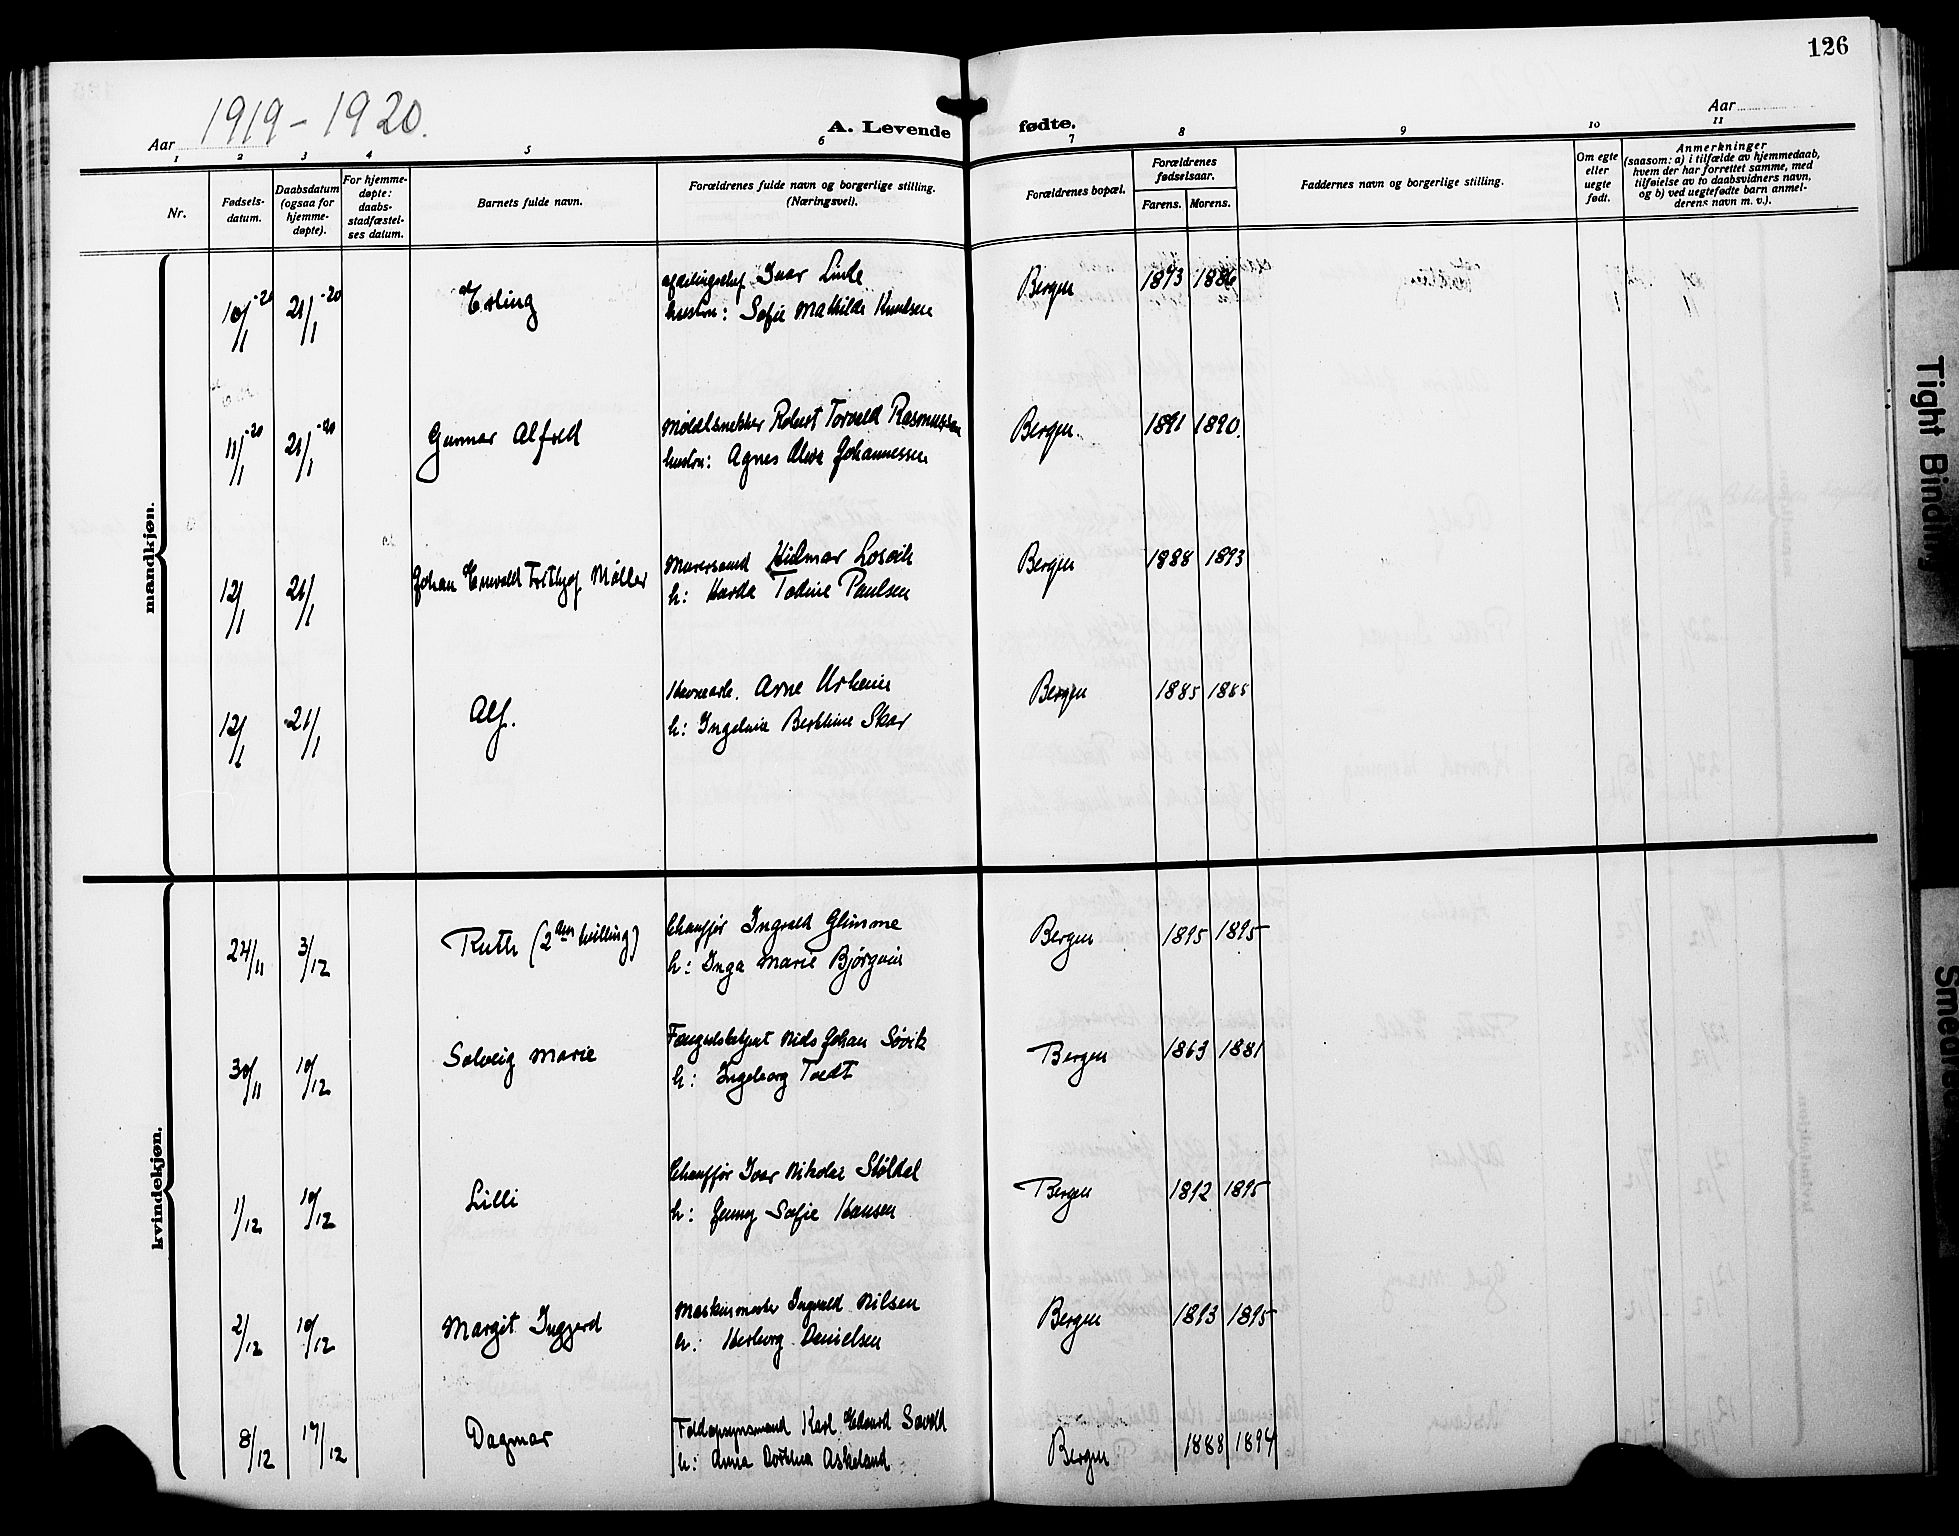 126
Aar 1919 - 1920.
A. Levende fødte.
Aar
1 2 3 4 5 6 7 8 9 10 11
Nr.
Fødsels-
datum.
Daabsdatum
(ogsaa for
hjemme-
døpte).
For hjemme-
døpte:
daabs-
stadfæstel-
ses datum.
Barnets fulde navn.
Forældrenes fulde navn og borgerlige stilling.
(Næringsvei).
Forældrenes bopæl.
Forældrenes
fødselsaar.
Farens. Morens.
Faddernes navn og borgerlige stilling.
Om egte
eller
uegte
født.
Anmerkninger
(saasom: a) i tilfælde av hjemmedaab,
hvem der har forrettet samme, med
tilføielse av to daabsvidners navn,
og b) ved uegtefødte barn anmel-
derens navn m. v.).
mandkjøn.
10/1 -20 21/1 -20 Erling Ivar Linde Bergen 1893 1886
hustru: Sofie Mathilde Knudsen
11/1 -20 21/1 -20 Gunnar Alfred Møbelsnekker Robert Torvald Rasmussen Bergen. 1891 1890.
hustru: Agnes Johannessen
12/1 21/1 Johan Møller Hilmar Losvik Bergen 1888 1893
h: Todine Paulsen
12/1 21/1 Alf. Arne Urheim Bergen 1885 1885
h: Berthine Skar
kvindekjøn.
24/11 3/12 Ruth (2den tvilling) Chauffør Ingvald Glimme Bergen 1895 1895
h: Inga Marie Bjørgvin
30/11 10/12 Solveig Marie Fængselsbetjent Nils Johan Søvik Bergen 1863 1881
h: Ingeborg Tvedt
1/12 10/12 Lilli Chauffør Ivar Nikolai Bergen 1892 1895
h: Jenny Sofie Hansen
2/12 10/12 Margit Ingjerd Maskinmester Ingvald Nilsen Bergen 1893 1895
h: Herborg Danielsen
8/12 17/12 Dagmar Toldopsynsmand Karl Edvard Bergen 1888 1894
h: Anna Dorthea Askeland
Tight Binding